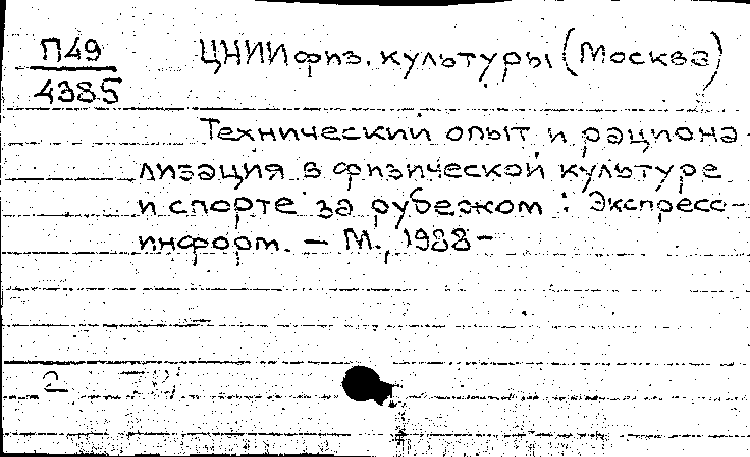 П49
4385
ЦНИИ физ. культуры (Москва)
Технический опыт и рациона-
лизация в физической культуре
и спорте за рубежом : Экспресс-
информ. – М., 1988–
2